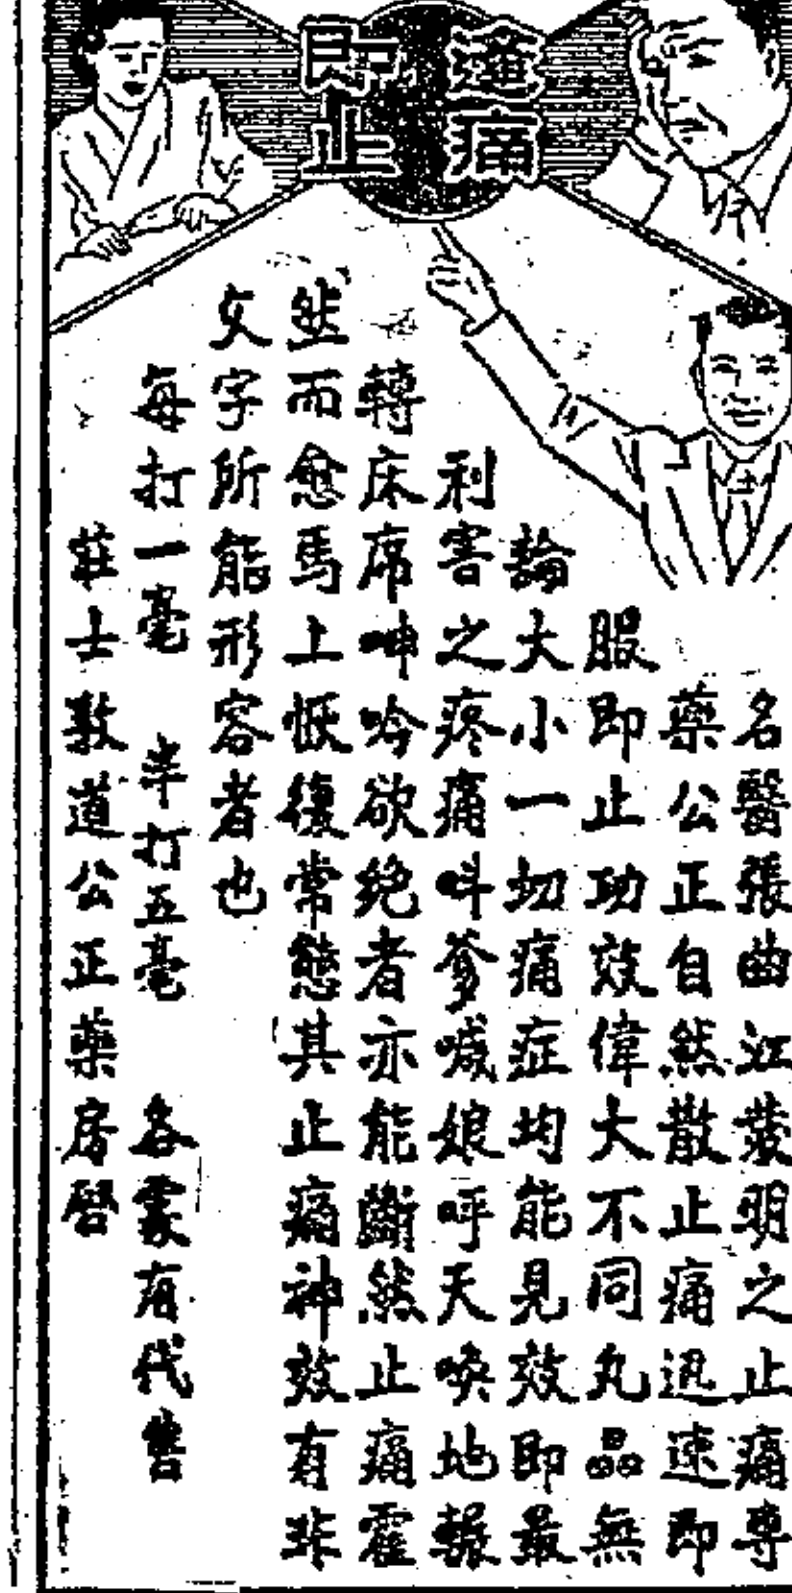 逢痛
即止
名醫張曲江發明之止痛專
藥公正自然散止痛迅速即
服即止功效偉大不同丸品無
論大小一切痛症均能見效即最
利害之疼痛呌爹喊娘呼天喚地輾
轉床席呻吟欲絶者亦能斷然止痛霍
然而愈馬上恢復常態其止痛神效有非
文字所能形容者也
每打一毫 半打五毫 各處有代售
莊士敦道公正藥房啓